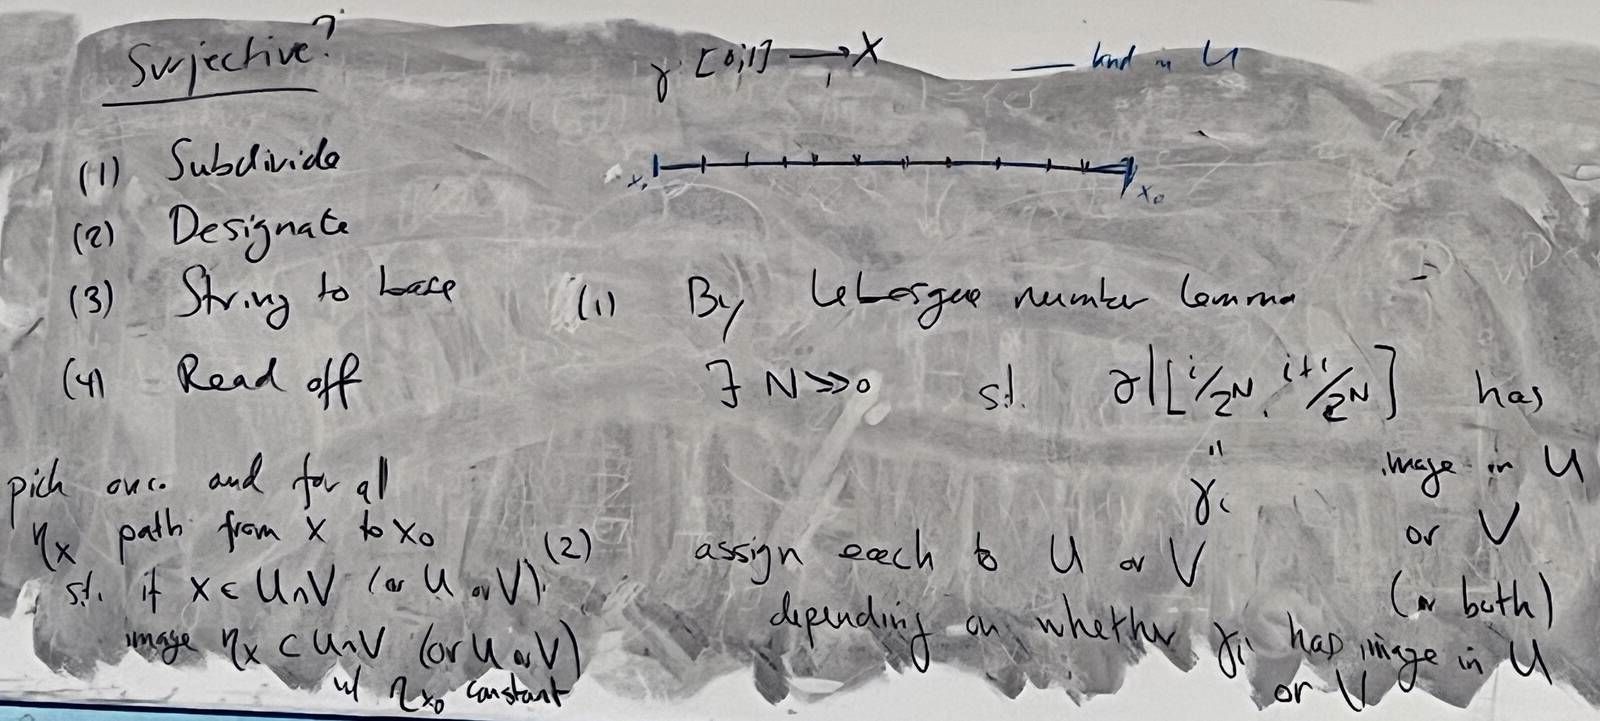 Surjective?
(1) Subdivide
(2) Designate
(3) String to base
(4) Read off
pick once and for all
η_x path from x to x_0
st. if x ∈ U∩V (or U or V)
image η_x ⊂ U∩V (or U or V)
w/ η_{x_0} constant
γ: [0,1] → X
— in U
x_0 x_0
(1) By Lebesgue number lemma
∃ N≫0 st. γ|[i/2^N, i+1/2^N] has
"
γ_i
image in U
or V
(or both)
(2) assign each to U or V
depending on whether γ_i has image in U
or V